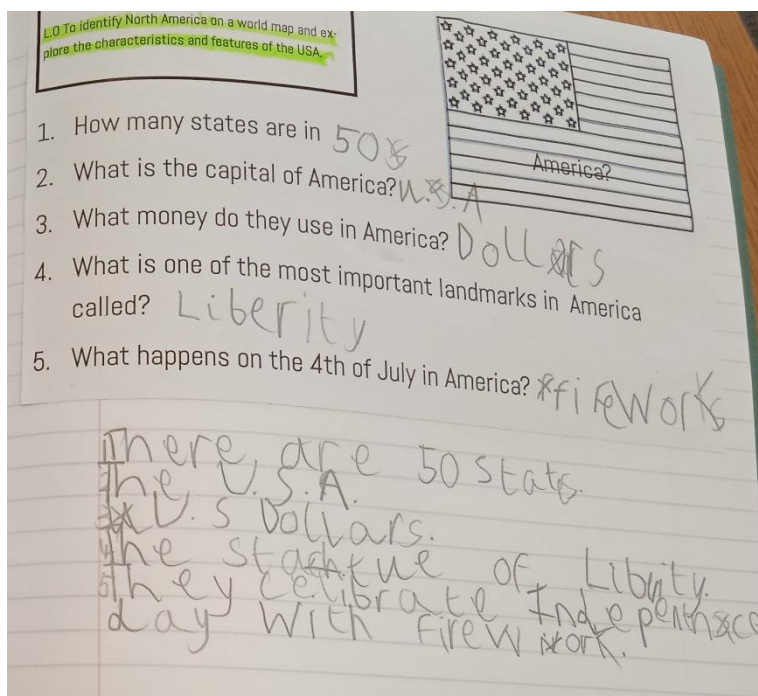 L.O To identify North America on a world map and ex-
plore the characteristics and features of the USA.
1. How many states are in 50
America?
2. What is the capital of America? U.S.A
3. What money do they use in America? Dollars
4. What is one of the most important landmarks in America
called? Liberity
5. What happens on the 4th of July in America? fireworks
There are 50 stats.
The U.S.A.
U.S Dollars.
the stachtue of Libuity.
they celibrate Indepenthace
day with firework.